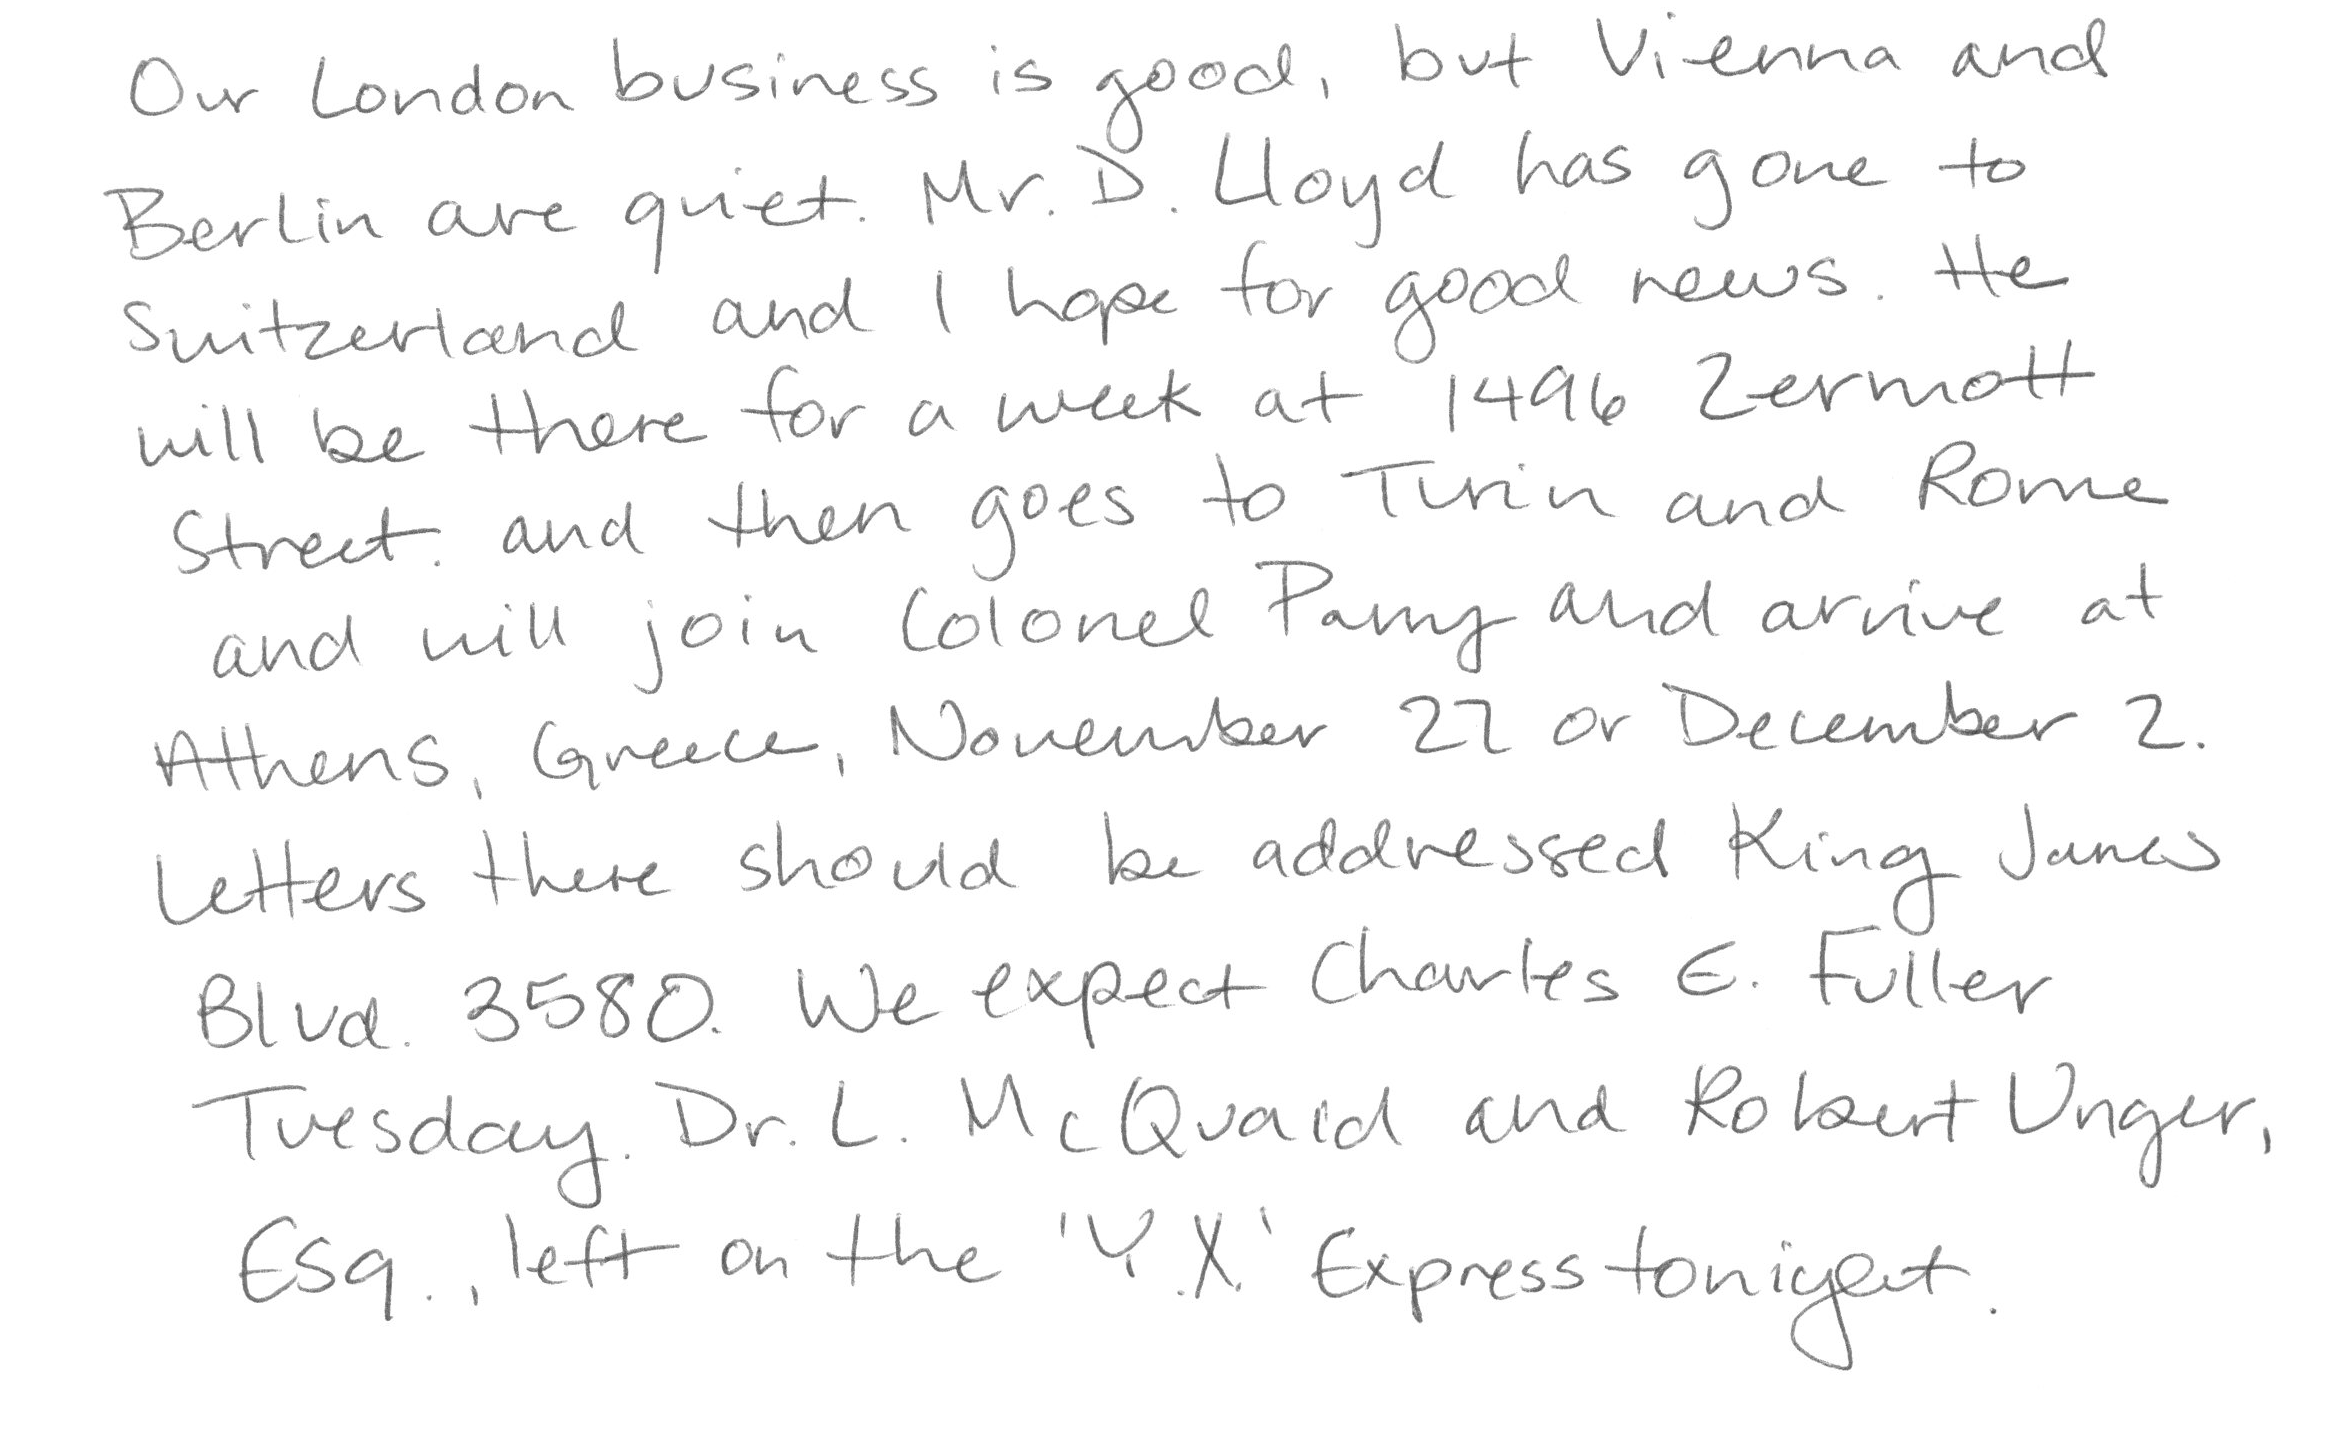 Our London business is good, but Vienna and
Berlin are quiet. Mr. D. Lloyd has gone to
Switzerland and I hope for good news. He
will be there for a week at 1496 Zermott
Street. and then goes to Turin and Rome
and will join Colonel Parry and arrive at
Athens, Greece, November 27 or December 2.
Letters there should be addressed King James
Blvd. 3580. We expect Charles E. Fuller
Tuesday. Dr. L. McQuaid and Robert Unger,
Esq., left on the 'Y.X.' Express tonight.